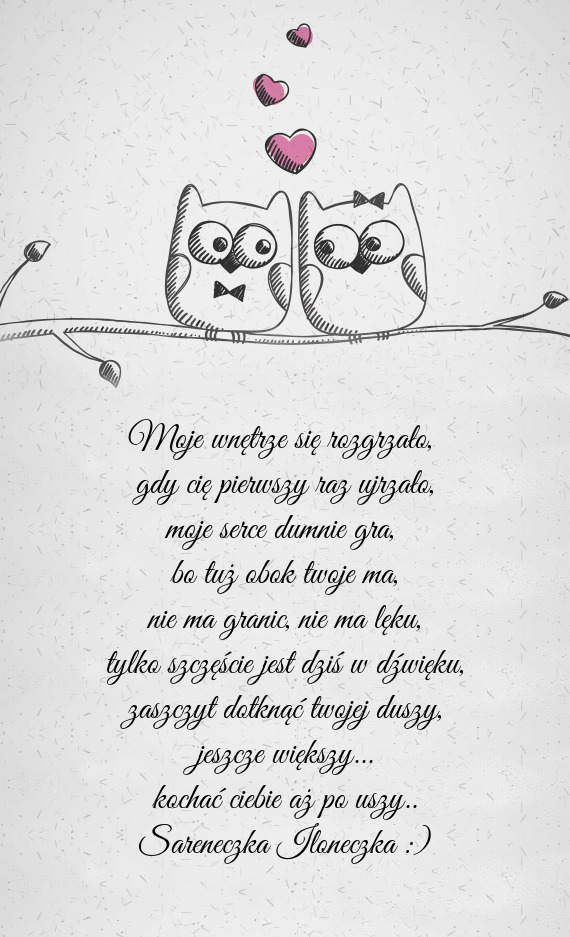 Moje wnętrze się rozgrzało,
gdy cię pierwszy raz ujrzało,
moje serce dumnie gra,
bo tuż obok twoje ma,
nie ma granic, nie ma lęku,
tylko szczęście jest dziś w dźwięku,
zaszczyt dotknąć twojej duszy,
jeszcze większy...
kochać ciebie aż po uszy..
Sareneczka Iloneczka :)